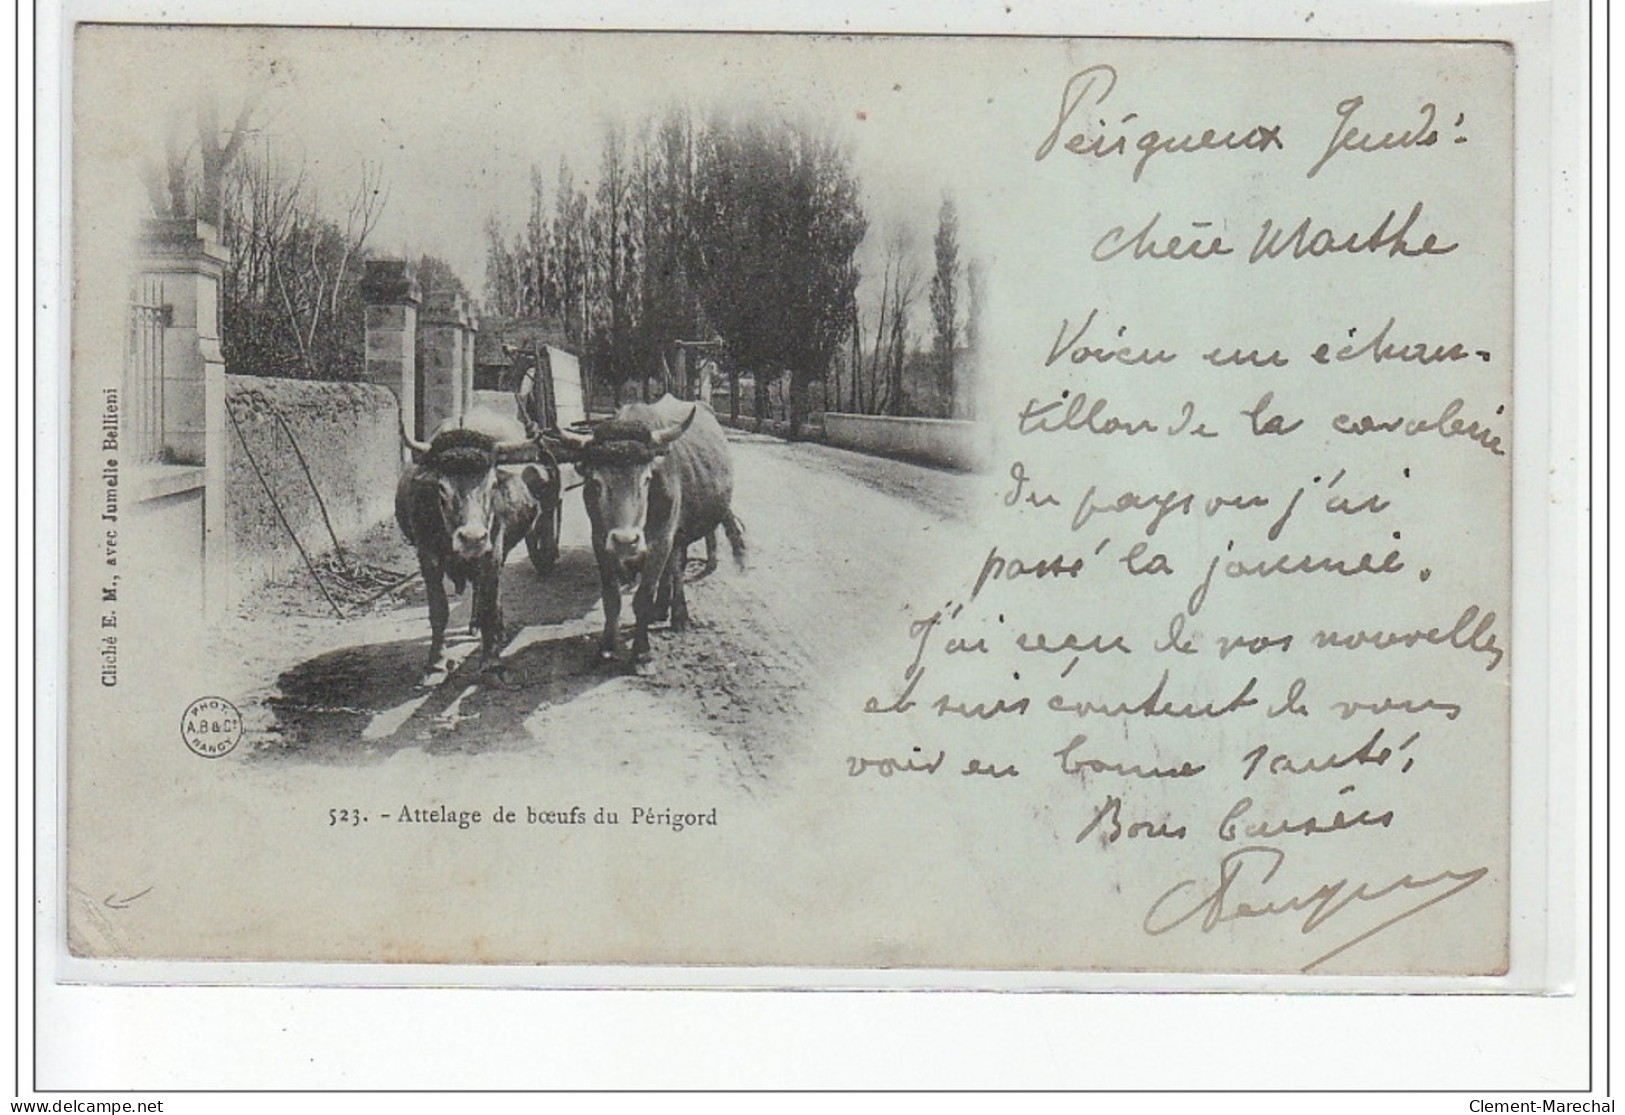 Périgueux Jeudi
chère Marthe
Voici un échan-
tillon de la cavalerie
du pays où j'ai
passé la journée.
J'ai reçu de vos nouvelles
et suis content de vous
voir en bonne santé,
Bons baisers
Cliché E. M., avec Jumelle Bellieni
PHOT.
A.B & Cie
NANCY
523. - Attelage de bœufs du Périgord
delcampe.net
Clement-Marechal